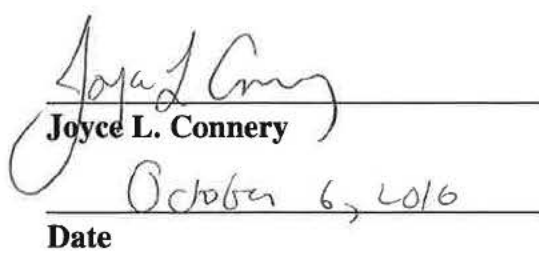 Joyce L Connery
Joyce L. Connery
October 6, 2016
Date